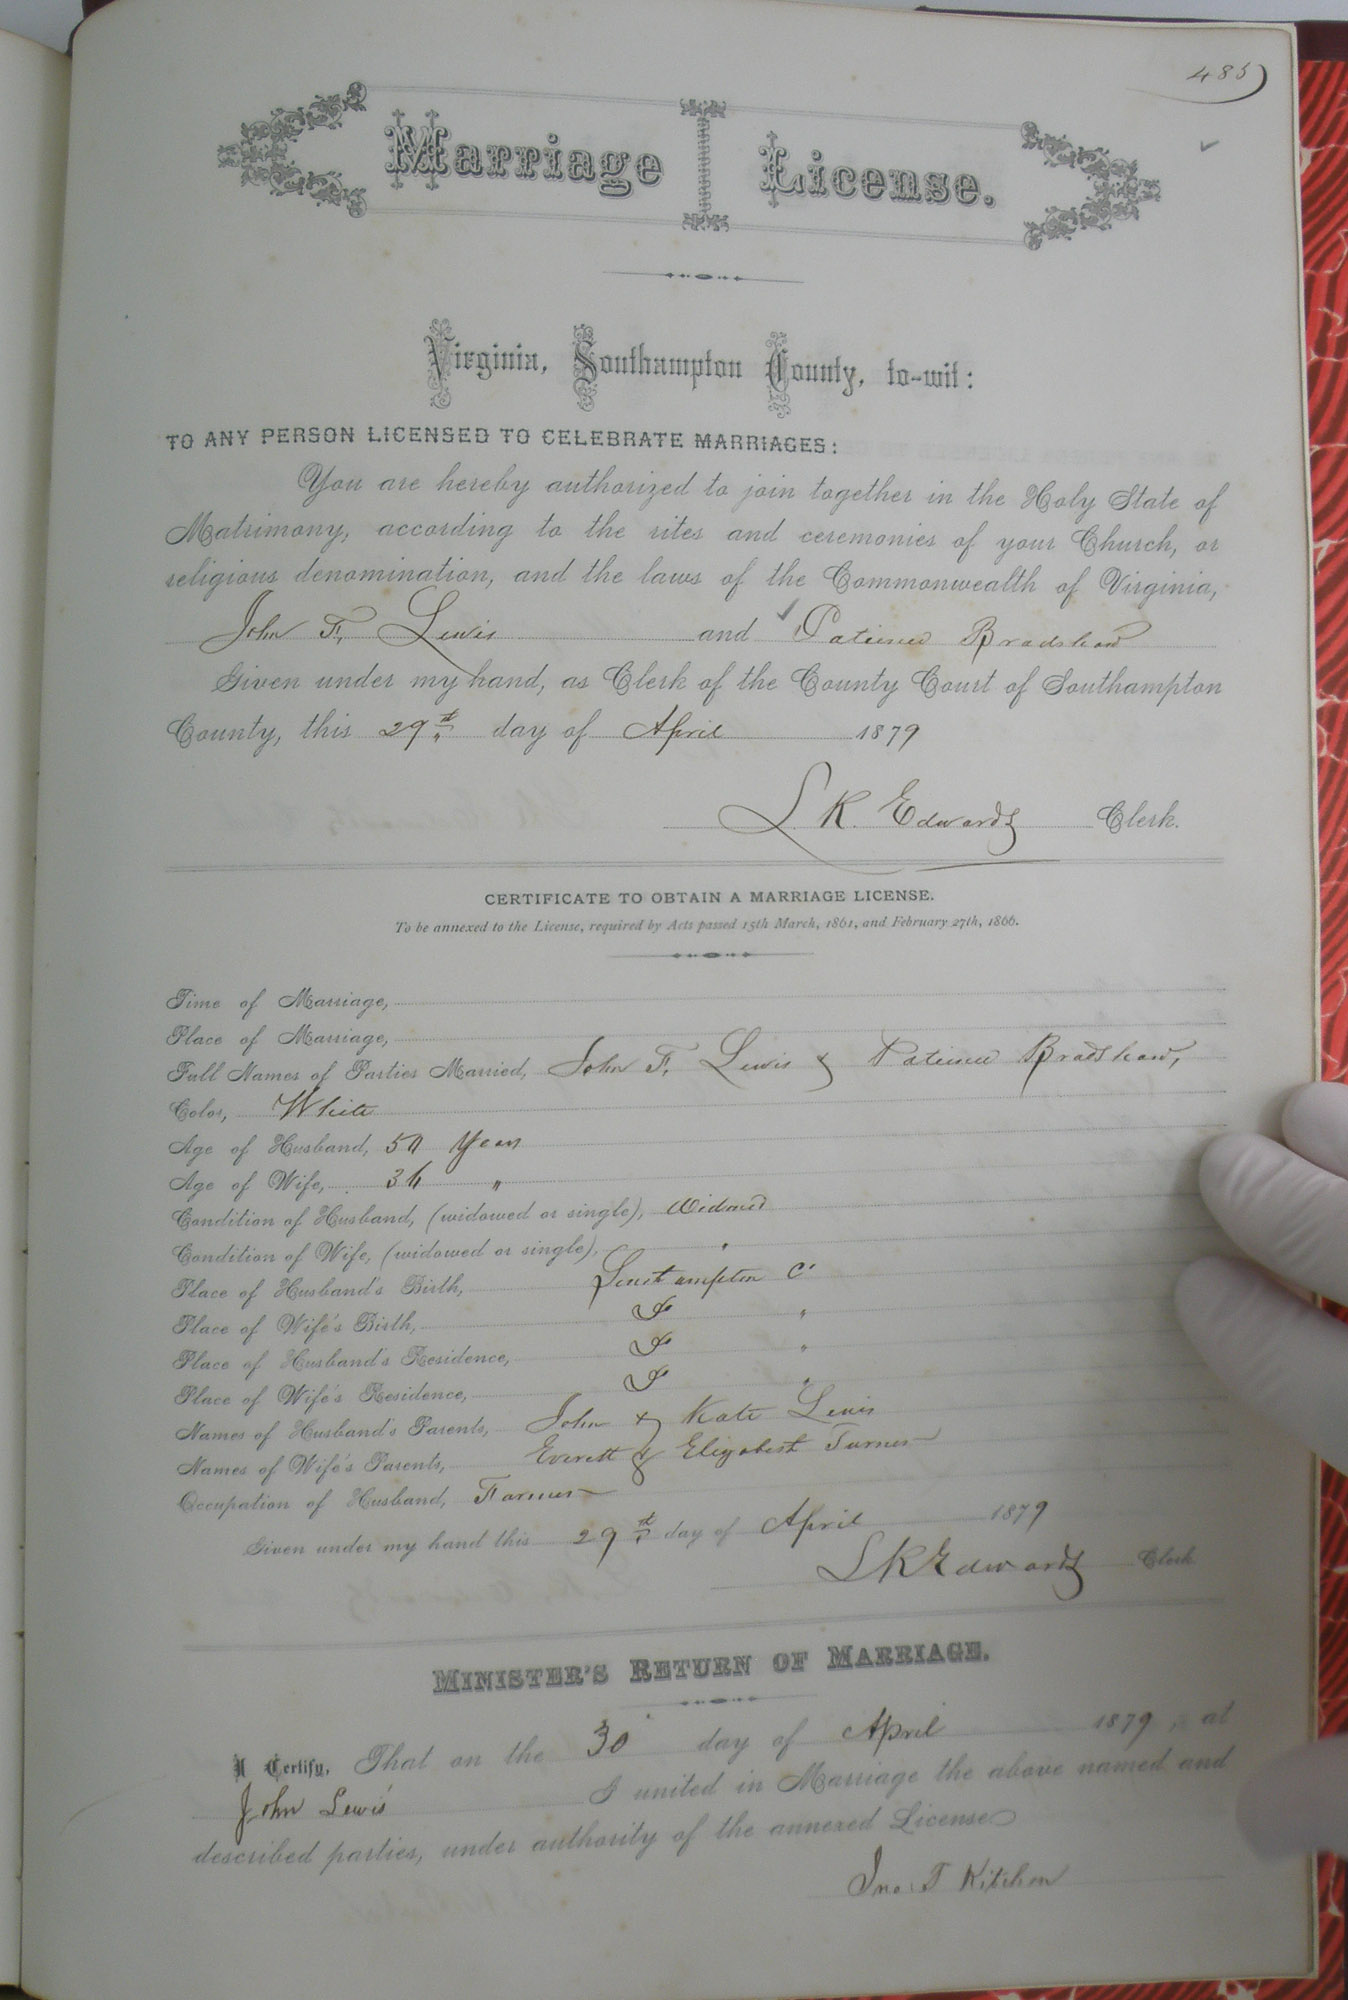 485
Marriage License.
Virginia, Southampton County, to-wit:
TO ANY PERSON LICENSED TO CELEBRATE MARRIAGES:
You are hereby authorized to join together in the Holy State of
Matrimony, according to the rites and ceremonies of your Church, or
religious denomination, and the laws of the Commonwealth of Virginia,
John F. Lewis and Patience Bradshaw
Given under my hand, as Clerk of the County Court of Southampton
County, this 29th day of April 1879
L. R. Edwards Clerk.
CERTIFICATE TO OBTAIN A MARRIAGE LICENSE.
To be annexed to the License, required by Acts passed 15th March, 1861, and February 27th, 1866.
Time of Marriage,
Place of Marriage,
Full Names of Parties Married, John F. Lewis & Patience Bradshaw,
Color, White
Age of Husband, 50 Years
Age of Wife, 36 "
Condition of Husband, (widowed or single), Widowed
Condition of Wife, (widowed or single), "
Place of Husband's Birth, Southampton Co
Place of Wife's Birth, "
Place of Husband's Residence, "
Place of Wife's Residence, "
Names of Husband's Parents, John & Kate Lewis
Names of Wife's Parents, Everett & Elizabeth Turner
Occupation of Husband, Farmer
Given under my hand this 29th day of April 1879
L R Edwards Clerk
MINISTER'S RETURN OF MARRIAGE.
I Certify, That on the 30 day of April 1879, at
John Lewis' I united in Marriage the above named and
described parties, under authority of the annexed License
Jno: T Kitchen